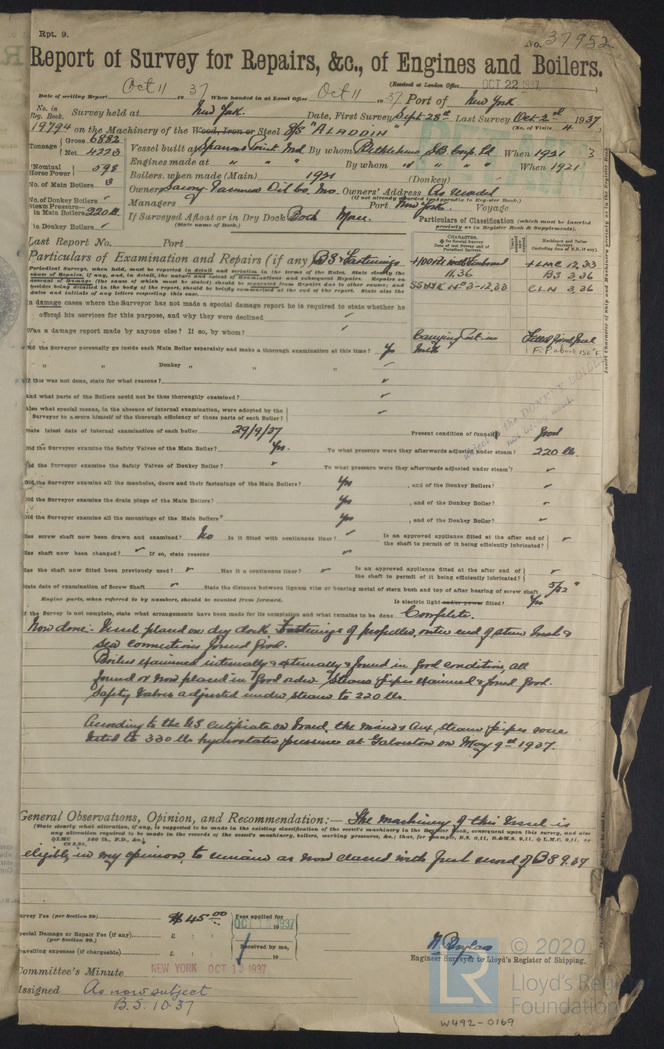 Rpt. 9.
No. 37952
Report of Survey for Repairs, &c., of Engines and Boilers.
(Received at London Office OCT 22 1937
Date of writing Report Oct 11 19 37 When handed in at Local Office Oct 11 19 37 Port of New York
No. in Reg. Book. Survey held at New York. Date, First Survey Sept 28th Last Survey Oct 2nd 1937
(No. of Visits 4.)
19794 on the Machinery of the Wood, Iron or Steel S/S "ALADDIN"
Tonnage Gross 6882 Net 4223
Vessel built at Sparrows Point Md. By whom Bethlehem SB Corp Ld When 1921 3
Engines made at " " " By whom " " " When 1921
Nominal Horse Power 598
Boilers, when made (Main) 1921 (Donkey)
No. of Main Boilers 3
Owners Socony Vacuum Oil Co. Inc. Owners' Address As recorded
(if not already recorded in Appendix to Register Book.)
No. of Donkey Boilers
Managers Port New York. Voyage
Steam Pressure in Main Boilers 220 lb
in Donkey Boilers
If Surveyed Afloat or in Dry Dock Both
(State name of Dock.)
Particulars of Classification (which must be inserted precisely as in Register Book & Supplements).
Last Report No. Port
Particulars of Examination and Repairs (if any) BS & Fastenings
+100A1
11.36
SS NYK No 3-12.33
+LMC 12,33
BS 3,36
CLN 3,36
Carrying Pet. in bulk
Fitted for oil fuel
F.P. above 150°F.
In damage cases where the Surveyor has not made a special damage report he is required to state whether he offered his services for this purpose, and why they were declined
Was a damage report made by anyone else? If so, by whom?
Did the Surveyor personally go inside each Main Boiler separately and make a thorough examination at this time? Yes
" " Donkey " " "
If this was not done, state for what reasons?
And what parts of the Boilers could not be thus thoroughly examined?
Also what special means, in the absence of internal examination, were adopted by the Surveyor to assure himself of the thorough efficiency of those parts of each Boiler?
State latest date of internal examination of each boiler 29/9/37 Present condition of funnel(s) Good
Did the Surveyor examine the Safety Valves of the Main Boiler? Yes. To what pressure were they afterwards adjusted under steam? 220 lb.
Did the Surveyor examine the Safety Valves of Donkey Boiler? To what pressure were they afterwards adjusted under steam?
Did the Surveyor examine all the manholes, doors and their fastenings of the Main Boilers? Yes, and of the Donkey Boilers?
Did the Surveyor examine the drain plugs of the Main Boilers? Yes, and of the Donkey Boiler?
Did the Surveyor examine all the mountings of the Main Boilers? Yes, and of the Donkey Boiler?
Has screw shaft now been drawn and examined? No Is it fitted with continuous liner? Is an approved appliance fitted at the after end of the shaft to permit of it being efficiently lubricated?
Has shaft now been changed? If so, state reasons
Has the shaft now fitted been previously used? Has it a continuous liner? Is an approved appliance fitted at the after end of the shaft to permit of it being efficiently lubricated?
State date of examination of Screw Shaft State the distance between lignum vitæ or bearing metal of stern bush and top of after bearing of screw shaft 5/32"
Engine parts, when referred to by numbers, should be counted from forward. Is electric light and/or power fitted? Yes
If the Survey is not complete, state what arrangements have been made for its completion and what remains to be done Complete.
Now done:- Vessel placed on dry dock. Fastenings of propeller, outer end of stern bush &
sea connections found good.
Boilers examined internally & externally & found in good condition, all
found or now placed in good order. Steam pipes examined & found good.
Safety valves adjusted under steam to 220 lb.
According to the US Certificate on board, the main & aux steam pipes were
tested to 330 lb hydrostatic pressure at Galveston on May 9th 1937.
General Observations, Opinion, and Recommendation:— The machinery of this vessel is
eligible in my opinion, to remain as now classed with fresh record of BS 9.37
Survey Fee (per Section 29) $45.00 Fees applied for
OCT 1937
Special Damage or Repair Fee (if any) (per Section 29.) £
Received by me,
Travelling expenses (if chargeable) £ 19
Engineer Surveyor to Lloyd's Register of Shipping.
Committee's Minute NEW YORK OCT 13 1937
Assigned As now subject
B.S. 10.37
© 2020
Lloyd's Register
Foundation
W492-0169